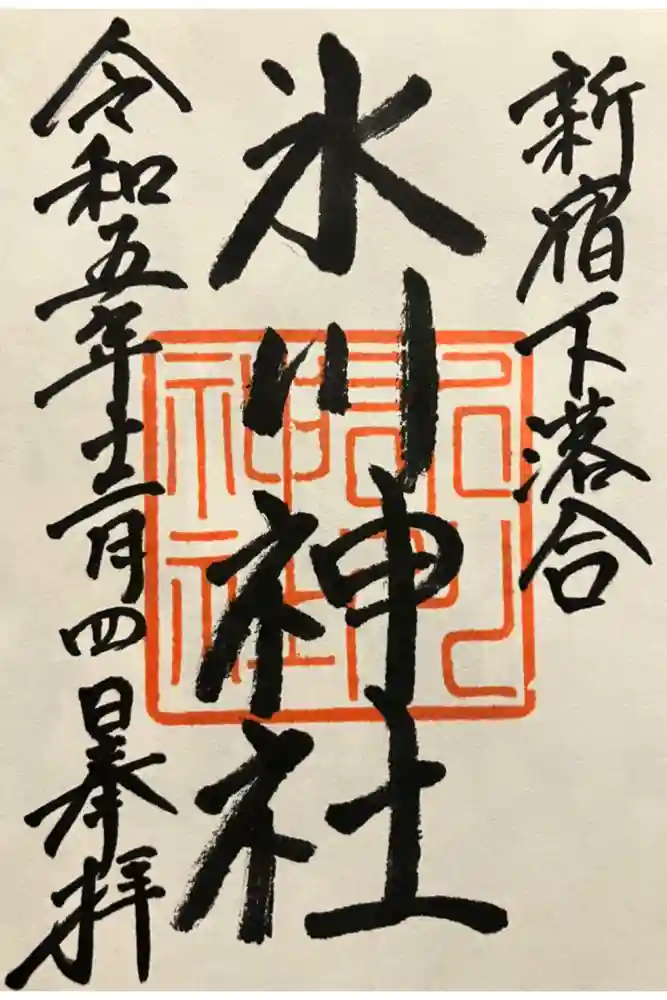 新宿下落合
氷川神社
令和五年十二月四日奉拝